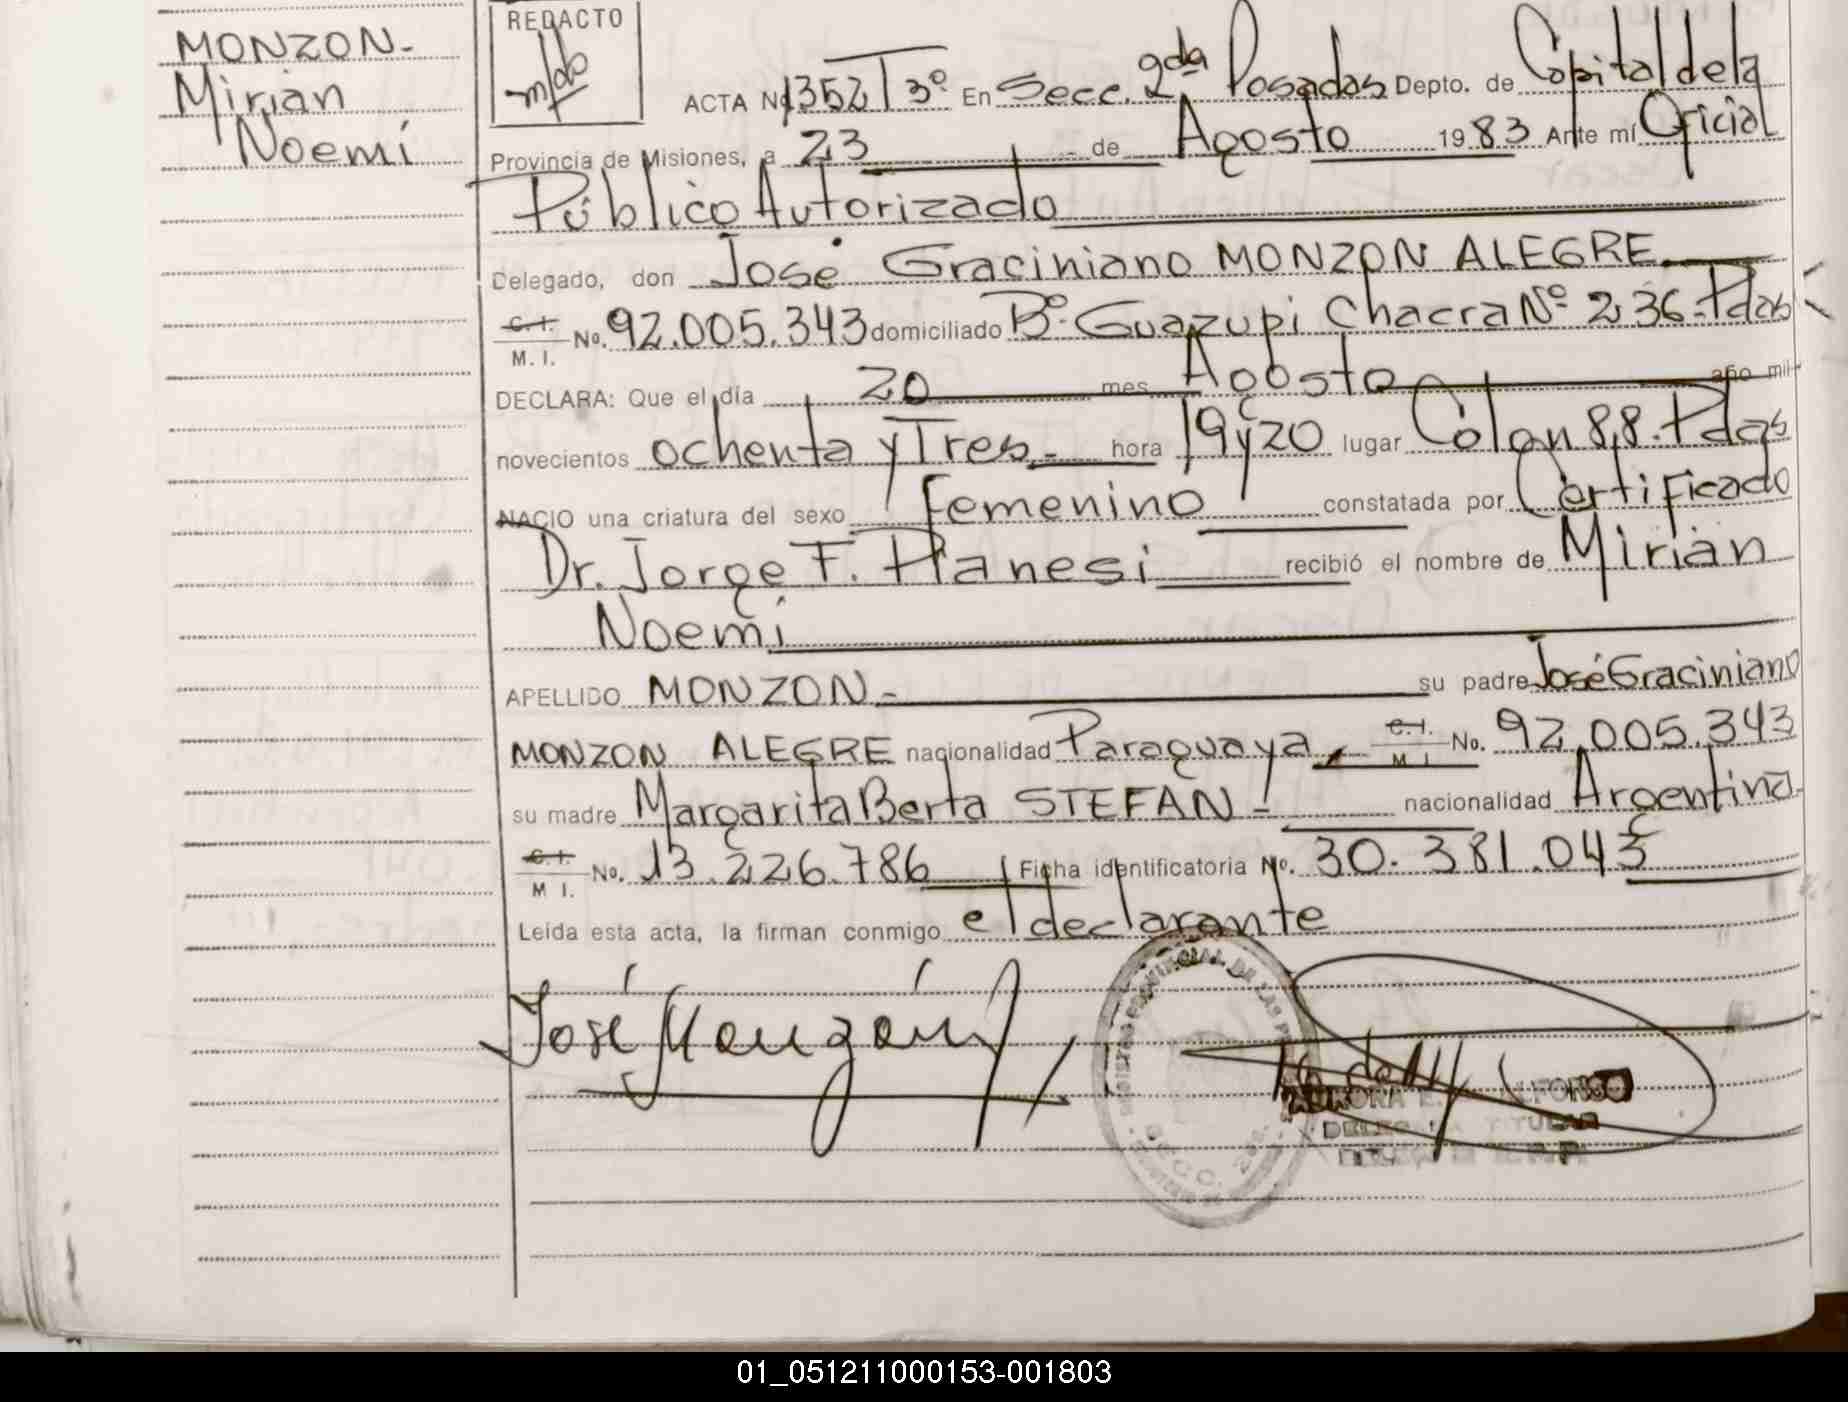 MONZON-
Mirian
Noemí
REDACTO
ACTA No 1352 T 3º En Secc. 2da Posadas Depto. de Capital de la
Provincia de Misiones, a 23 de Agosto 1983 Ante mí Oficial
Público Autorizado
Delegado, don José Graciniano MONZON ALEGRE
C.I.
M. I. No. 92.005.343 domiciliado Bº. Guazupi Chacra Nº 236-Pdas
DECLARA: Que el día 20 mes Agosto año mil
novecientos ochenta y Tres- hora 19 y 20 lugar Colon 88. Pdas
NACIO una criatura del sexo Femenino constatada por Certificado
Dr. Jorge F. Hanesi recibió el nombre de Mirian
Noemi
APELLIDO MONZON- su padre José Graciniano
MONZON ALEGRE nacionalidad Paraguaya C.I. M I No. 92.005.343
su madre Margarita Berta STEFAN- nacionalidad Argentina-
C.I.
M I. No. 13.226.786 Ficha identificatoria No. 30.381.045
Leída esta acta, la firman conmigo el declarante
José Monzón
REGISTRO PROVINCIAL DE LAS
SECC. 2da.
AURORA E. ALFONSO
DELEGADA TITULAR
01_051211000153-001803